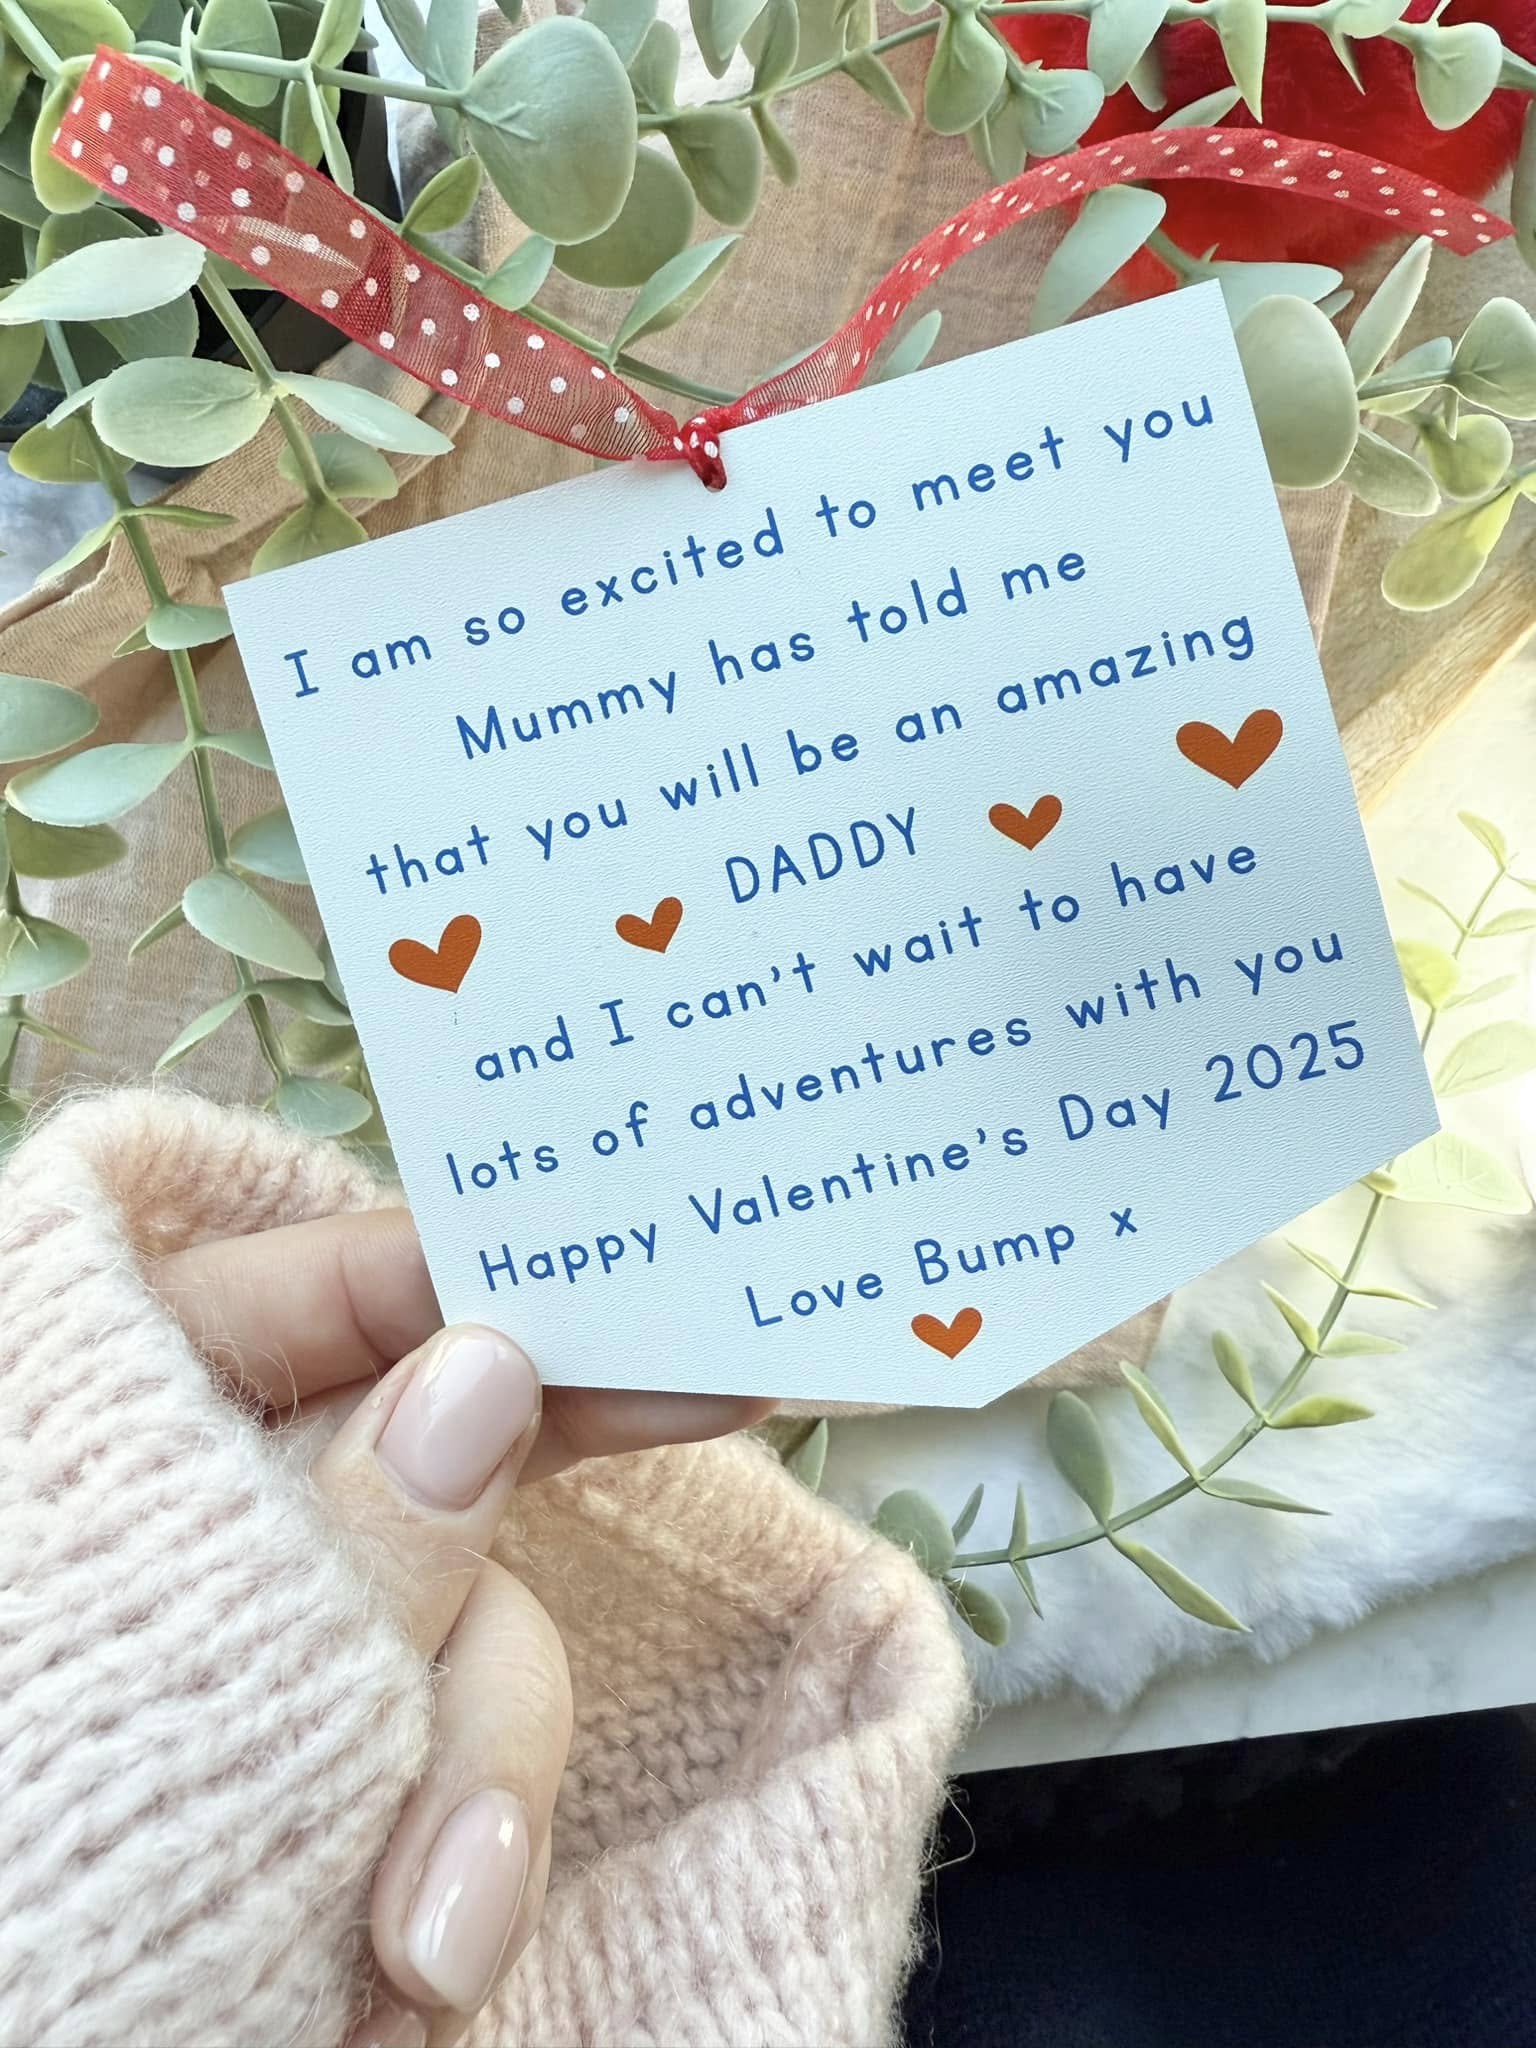 I am so excited to meet you
Mummy has told me
that you will be an amazing
DADDY
and I can't wait to have
lots of adventures with you
Happy Valentine's Day 2025
Love Bump x